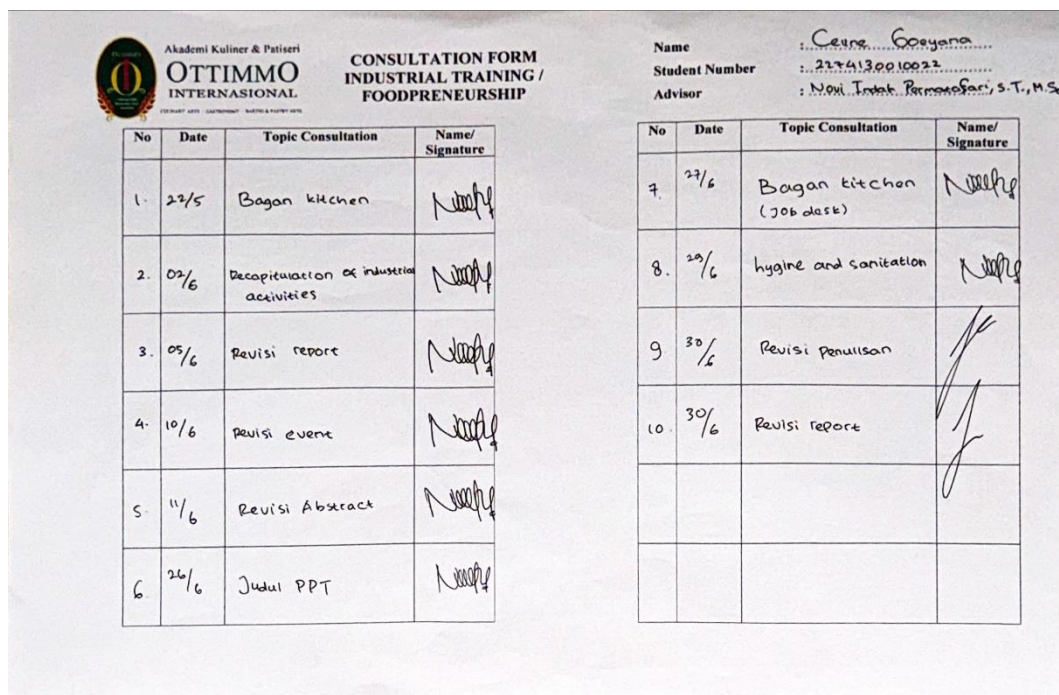 Akademi Kuliner & Patiseri
OTTIMMO
INTERNASIONAL
CONSULTATION FORM
INDUSTRIAL TRAINING /
FOODPRENEURSHIP
Name :
Student Number : 2274130010022
Advisor : Novi Indah Permatasari, S.T., M.Sc
No Date Topic Consultation Name/ Signature
1. 22/5 Bagan kitchen
2. 02/6 Recapitulation of industrial
activities
3. 05/6 Revisi report
4. 10/6 Revisi event
5. 11/6 Revisi Abstract
6. 26/6 Judul PPT
No Date Topic Consultation Name/ Signature
7. 27/6 Bagan kitchen
(Job desk)
8. 29/6 hygine and sanitation
9 30/6 Revisi penulisan
10. 30/6 Revisi report